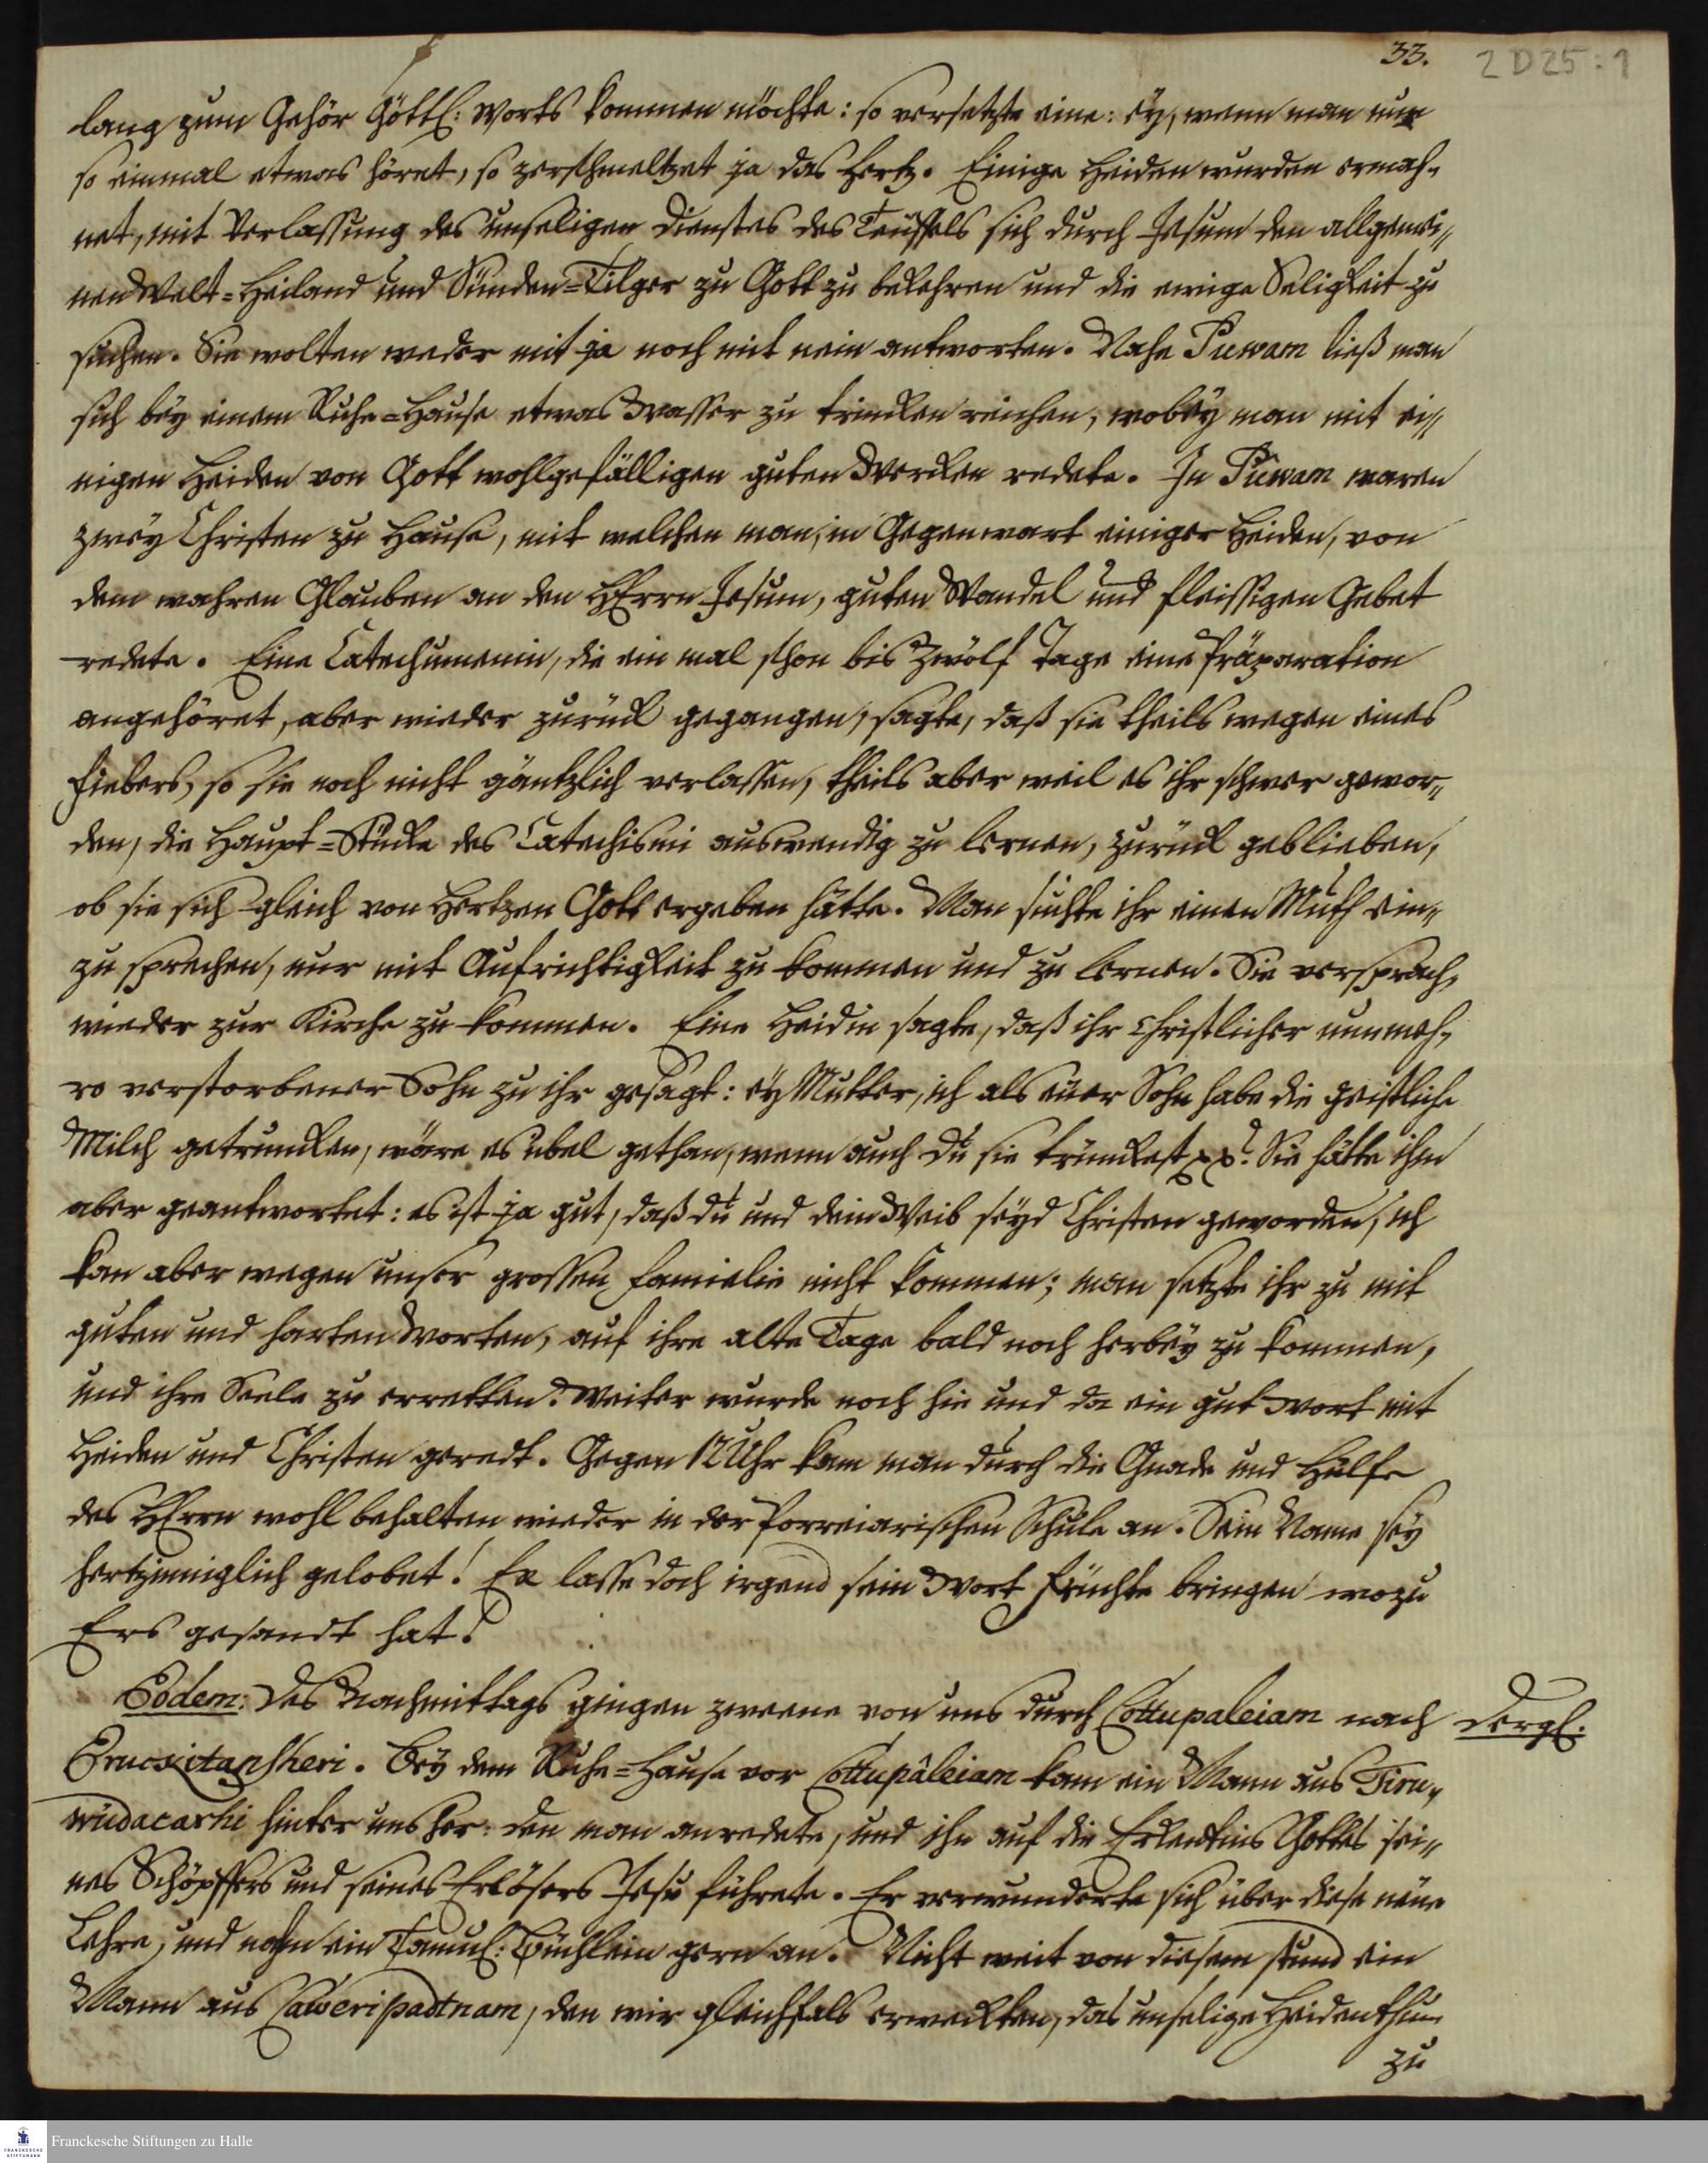 33.
2 D25:1
lang zum Gehör Göttl: Worts kommen möchte: so versetzte eine: ey, wenn man nur
so einmal etwas höret, so zerschmeltzet ja das Hertz. Einige Heiden wurden ermah-
net, mit Verlassung des unseligen Dienstes des Teüffels sich durch Jesum den allgemei-
nen Welt-Heiland und Sünden-Tilger zu Gott zu bekehren und die ewige Seligkeit zu
suchen. Sie wolten weder mit ja noch mit nein antworten. Nahe Puwam ließ man
sich bey einem Ruhe-Hause etwas Wasser zu trincken reichen, wobey man mit ei-
nigen Heiden von Gott wohlgefälligen guten Wercken redete. In Puwam waren
zwey Christen zu Hause, mit welchen man, in Gegenwart einiger Heiden, von
dem wahren Glauben an den HErrn Jesum, guten Wandel und fleissigen Gebet
redete. Eine Catechumenin, die ein mal schon bis zwölf Tage eine Präparation
angehöret, aber wieder zurück gegangen, sagte, daß sie theils wegen eines
Fiebers, so sie noch nicht gäntzlich verlassen, theils aber weil es ihr schwer gewor-
den, die Haupt-Stücke des Catechismi auswendig zu lernen, zurück geblieben,
ob sie sich gleich von Hertzen Gott ergeben hätte. Man suchte ihr einen Muth ein-
zu sprechen, nur mit Aufrichtigkeit zu kommen und zu lernen. Sie versprach,
wieder zur Kirche zu kommen. Eine Heidin sagte, daß ihr Christlicher nunmeh-
ro verstorbener Sohn zu ihr gesagt: ey Mutter, ich als euer Sohn habe die geistliche
Milch getruncken, wäre es übel gethan, wenn auch du sie trünckest? Sie hätte ihm
aber geantwortet: es ist ja gut, daß du und dein Weib seyd Christen geworden, ich
kan aber wegen unser grossen Familie nicht kommen; man setzte ihr zu mit
guten und harten Worten, auf ihre alte Tage bald noch herbey zu kommen,
und ihre Seele zu erretten. Weiter wurde noch hie und da ein gut Wort mit
Heiden und Christen geredt. Gegen 12 Uhr kam man durch die Gnade und Hülfe
des HErrn wohl behalten wieder in der Porreiarischen Schule an. Sein Name sey
hertzinniglich gelobet! Er lasse doch irgend sein Wort Früchte bringen wozu
Ers gesandt hat!
Eodem: Des Nachmittags gingen zweene von uns durch Cottupaleiam nach
dergl.
Erucsitansheri. Bey dem Ruhe-Hause vor Cottupâleiam kam ein Mann aus Tiru-
wudacarhi hinter uns her: den man anredete, und ihn auf die Erkentnis Gottes sei-
nes Schöpffers und seines Erlösers Jesu führete. Er verwunderte sich über diese neue
Lehre, und nahm ein Tamul: Büchlein gern an. Nicht weit von diesem stund ein
Mann aus Caweripadtnam, den wir gleichfals erweckten, das unselige Heidenthum
zu
Franckesche Stiftungen zu Halle